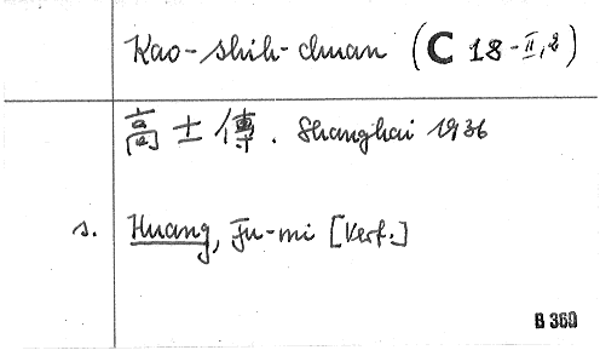 Kao-shih-chuan (C 18-II,2)
高士傳. Shanghai 1936
s. Huang, Fu-mi [Verf.]
B 360